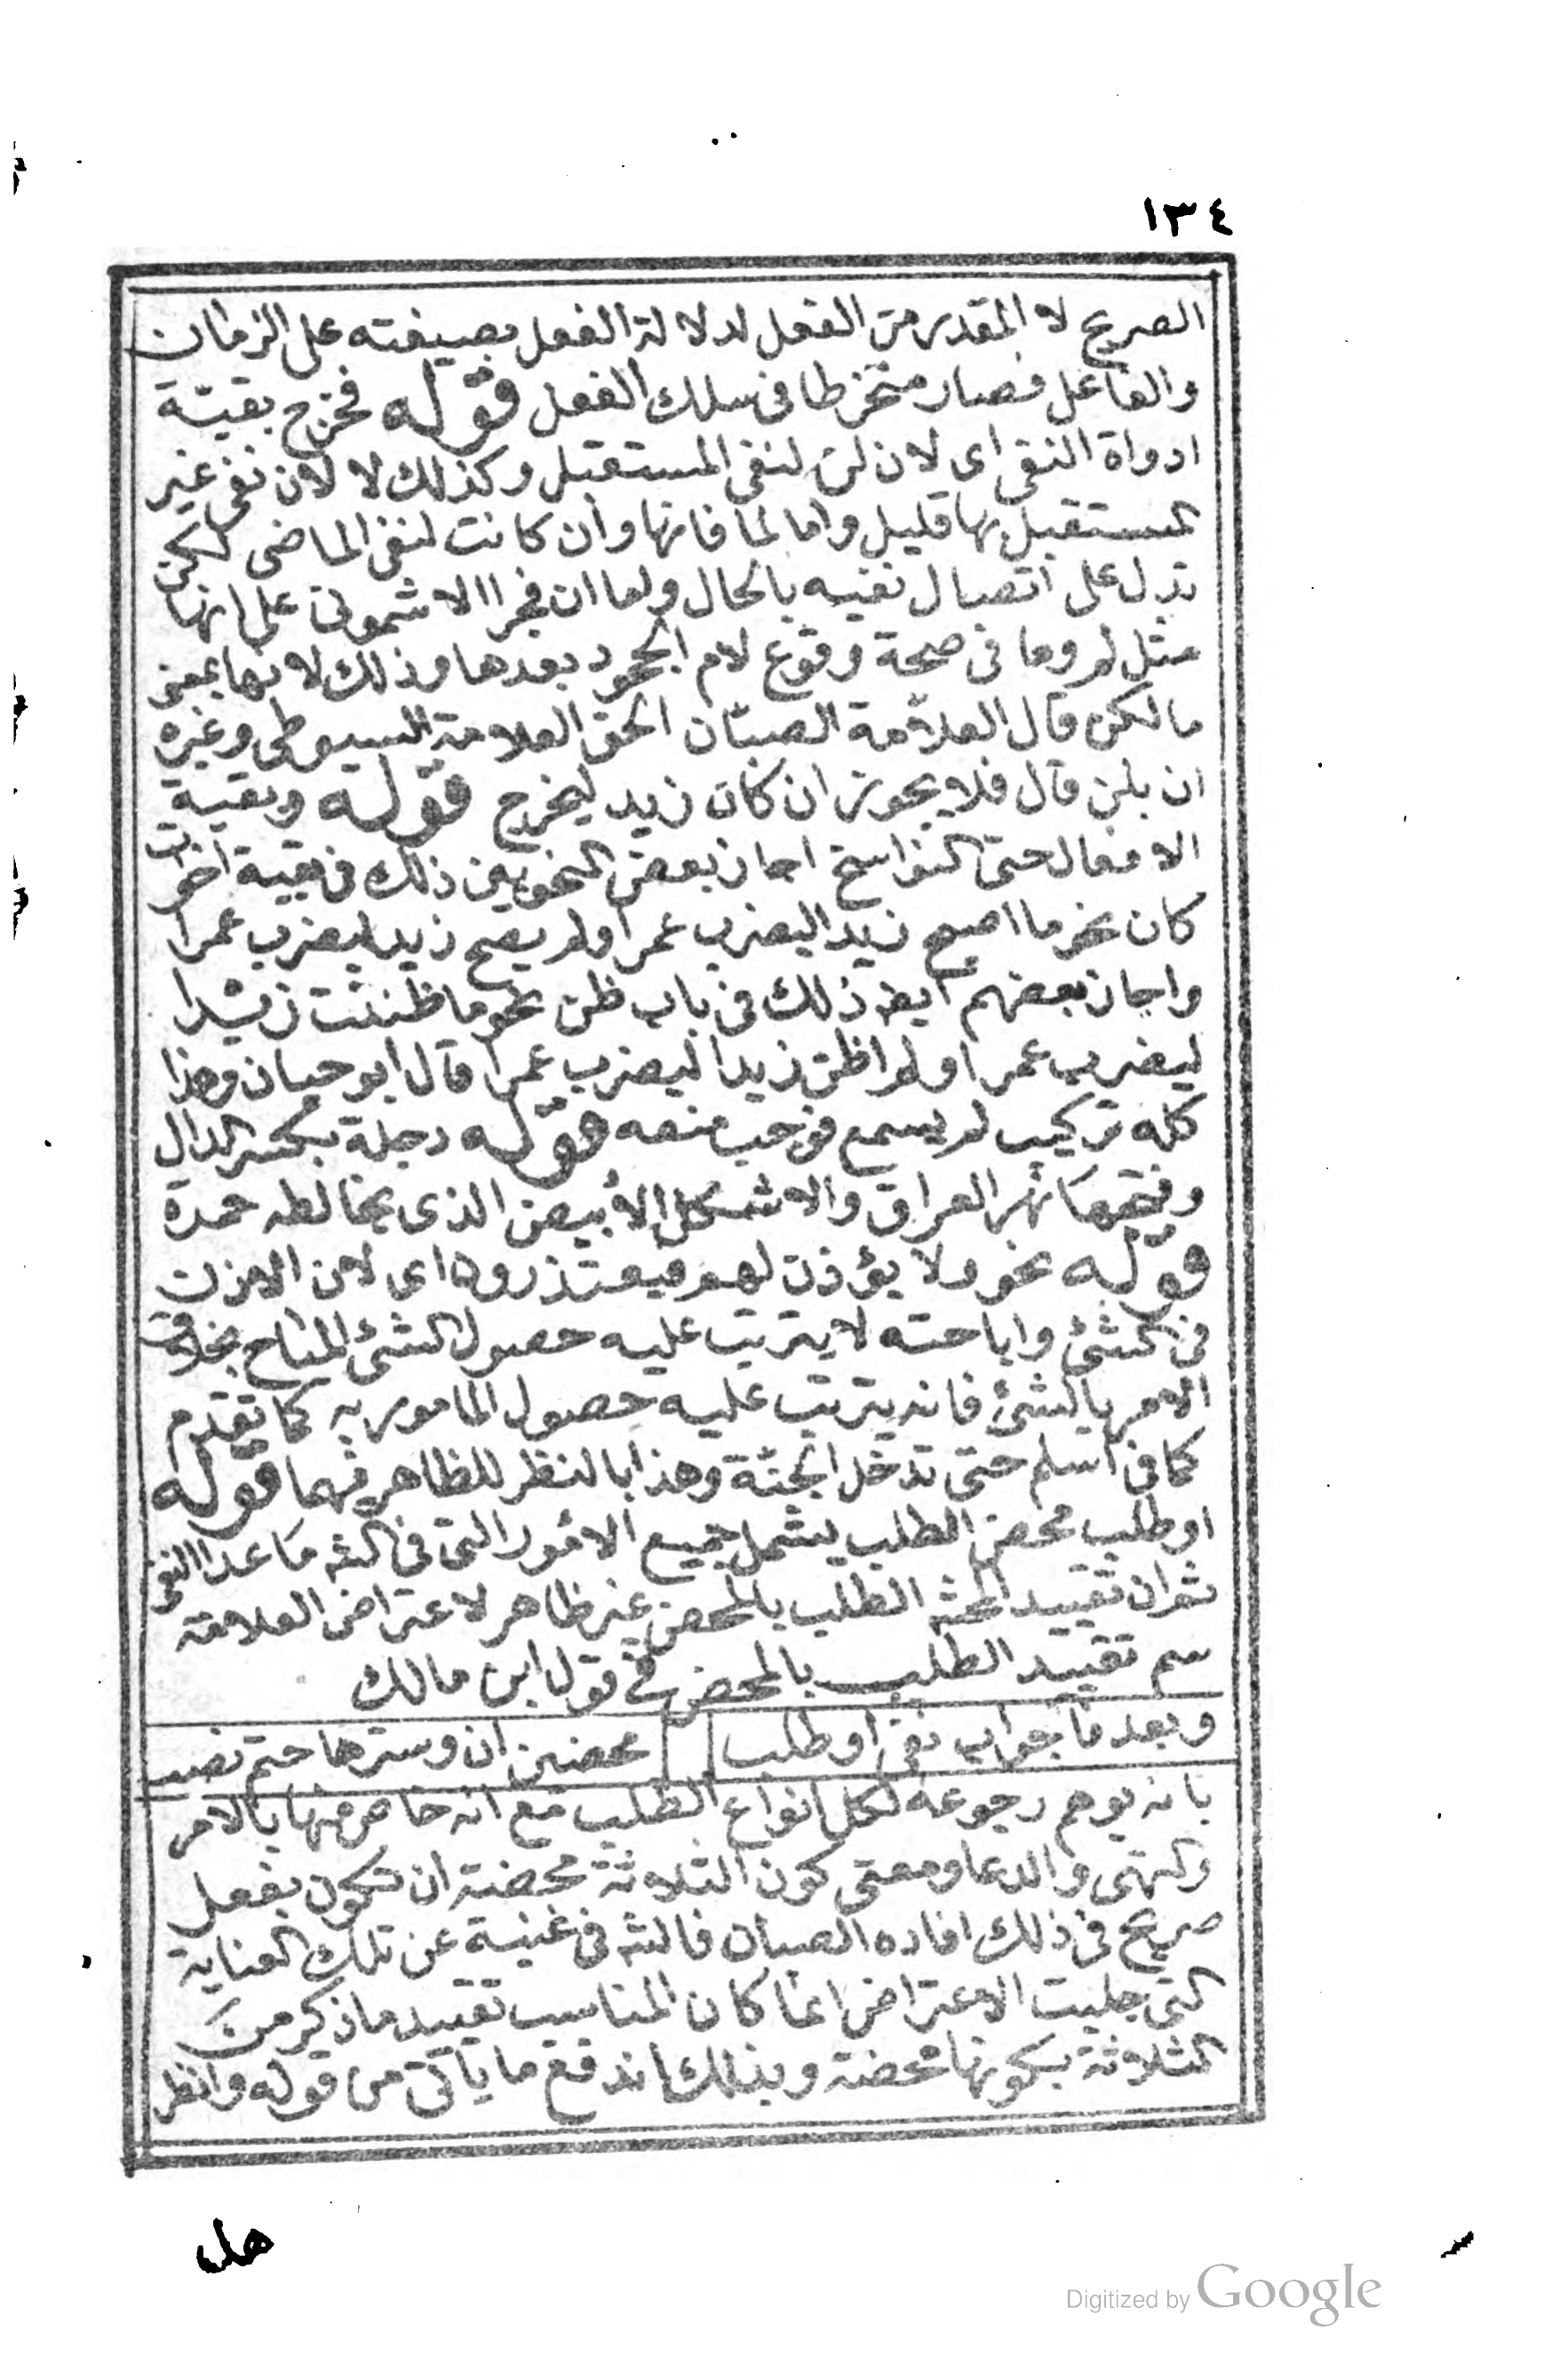 ١٣٤
الصريح لا المقدر من الفعل لدلالة الفعل بصيغته على الزمان
والفاعل فصار منخرطا فى سلك الفعل قوله فخرج بقية
ادواة النفى اى لان لن لنفى المستقبل وكذلك لا لان نفى غير
المستقبل بها قليل واما لما فانها وان كانت لنفى الماضى لكن
تدل على اتصال نفيه بالحال واما ان فجرا الاشمونى على انها
مثل لم وما فى صحة وقوع لام الجحود بعدها وذلك لانها بمعنى
ما لكن قال العلامة الصبان الحق العلامة السيوطى وغيره
ان بلن قال فلا يجوز ان كان زيد ليخرج قوله وبقية
الافعال حتى النواسخ اجاز بعض النحويين ذلك فى بقية اخوات
كان نحو ما اصبح زيد اليضرب عمرا ولم يصبح زيد ليضرب عمرا
واجاز بعضهم ايضا ذلك فى باب ظن نحو ما ظننت زيدا
ليضرب عمرا ولم اظن زيدا ليضرب عمرا قال ابو حيان وهذا
كله تركيب لم يسمع فوجب منعه قوله دجلة بكسر الدال
وفتحها نهر العراق والاشكل الأبيض الذى يخالطه حمرة
قوله نحو ولا يؤذن لهم فيعتذرون اى لان الاذن
فى الشئ واباحته لا يترتب عليه حصول الشئ المباح بخلاف
الامر بالشئ فانه يترتب عليه حصول المامور به كما تقدم
كما فى اسلم حتى تدخل الجنة وهذا بالنظر للظاهر فيهما قوله
او طلب محض الطلب يشمل جميع الامور التى فى الشه ما عدا النفى
ثم ان تقييد المحشه الطلب بالمحض غير ظاهر لاعتراض العلامة
سم تقييد الطلب بالمحض فى قول ابن مالك
وبعد فا جواب نفى او طلب محضين ان وسترها حتم نصب
بانه يوهم رجوعه لكل انواع الطلب مع انه خاص منها بالامر
والنهى والدعا ومعنى كون الثلاثة محضة ان تكون بفعل
صريح فى ذلك افاده الصبان فالشه فى غنية عن تلك العناية
التى جلبت الاعتراض انما كان المناسب تقييد ما ذكر من
الثلاثة بكونها محضة وبذلك اندفع ما يأتى من قوله وانظر
هل
Digitized by Google